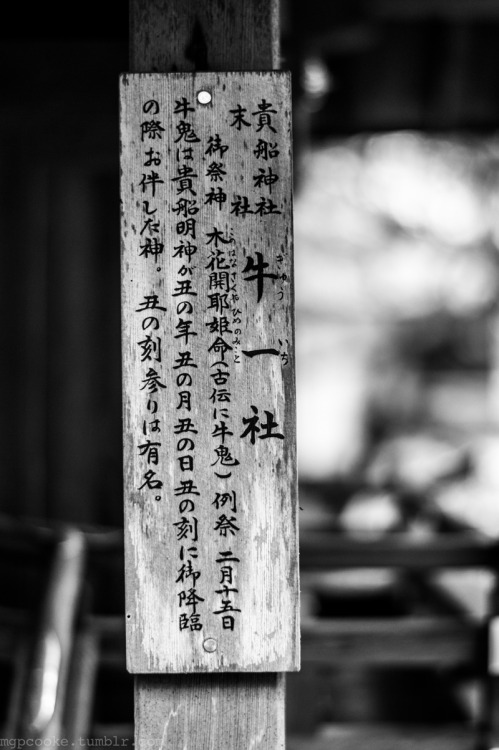 貴船神社
末社
牛一社
ぎゅう いち
御祭神 木花開耶姫命(古伝に牛鬼) 例祭 二月十五日
このはなさくやひめのみこと
牛鬼は貴船明神が丑の年丑の月丑の日丑の刻に御降臨
の際お伴した神。 丑の刻参りは有名。
mgpcooke.tumblr.com